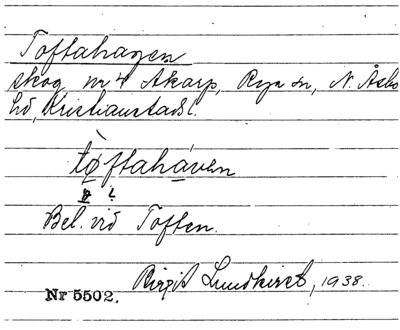 Toftahagen
skog nr 4 Åkarp, Rya sn, N. Åsbo
hd, Kristianstads l.
tø̀ftahàven
Bel. vid Toften.
Birgit Lundkvist, 1938.
Nr 5502.